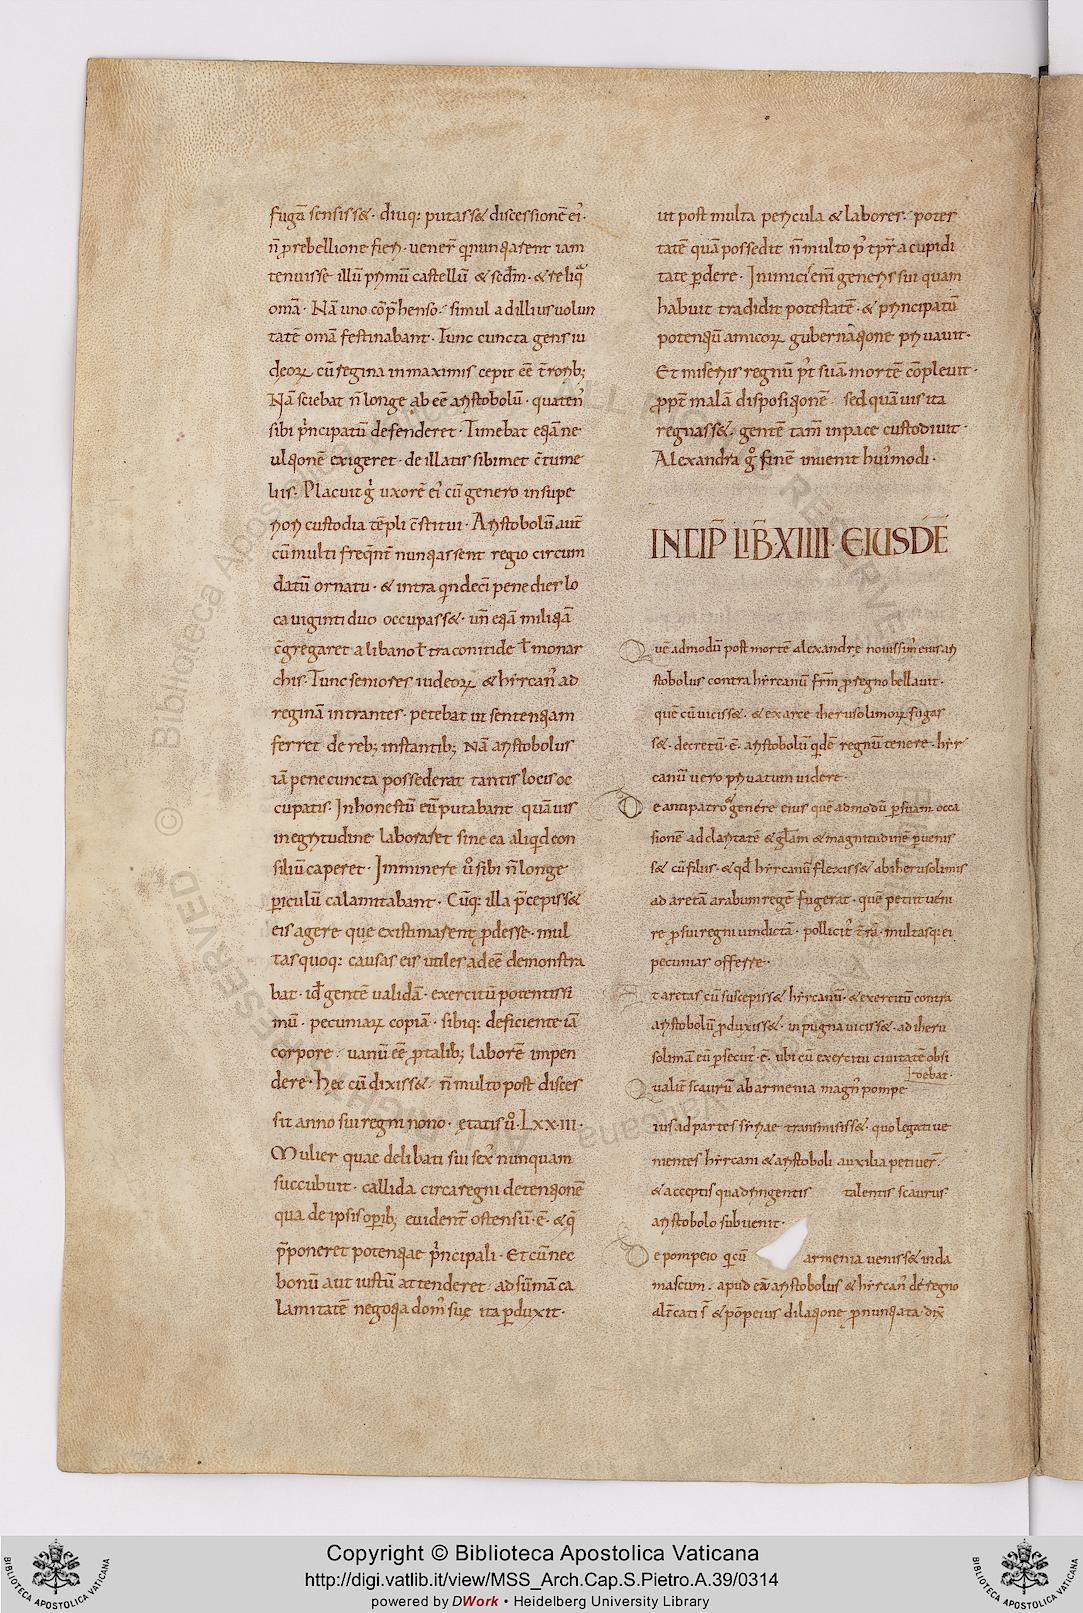 fugā sensisse&. diuq; putass& discessionē ei᾽.
n̄ p rebellione fieri. uener̄ q̄ nunt̄iasent iam
tenuisse illū primū castellū & sed̄m. & reliq̄
om̄a. Nā uno cōp̄henso. simul ad illius uolun
tatē om̄a festinabant. Tunc cuncta gens iu
deoꝝ cū regina in maximis cepit eē t̄rorib;
Nā sciebat n̄ longe ab eē aristobolū. quaten᾽
sibi p̄ncipatū defenderet. Timebat etiā ne
ultionē exigeret. de illatis sibimet c̄tume
liis. Placuit ḡ uxorē ei᾽ cū genero in supe
riori custodia tēpli c̄stitui. Aristobolū aut̄
cū multi freq̄nt̄ nuntiassent regio circum
datū ornatu. & intra quindeci pene dies lo
ca uiginti duo occupass&. un̄ etiā militiā
c̄gregaret a libano ł traconitide ł monar
chis. Tunc seniores iudeoꝝ & hircan᾽ ad
reginā intrantes. petebat ut sententiam
ferret de reb; instantib; Nā aristobolus
iā pene cuncta possederat tantis locis oc
cupatis. Inhonestū eū putabant quāuis
in egritudine laboraset sine ea aliquid con
siliū caperet. Imminere u̾ sibi n̄ longe
ꝑiculū calamitabant. Cūq; illa p̄cepiss&
eis agere que existimasent ꝓdesse. mul
tas quoq; causas eis utiles adeē demonstra
bat. id gentē validā. exercitū potentissi
mū. pecuniaꝝ copiā. sibiq; deficiente iā
corpore. uanū eē ꝓ talib; laborē inpen
dere. Hec cū dixiss& n̄ multo post disces
sit anno sui regni nono. ętatis u̾. Lxx.iii.
Mulier quae delibati sui sex᾽ nunquam
succubuit. callida circa regni detentionē
qua de ipsis oꝑib; euident̄ ostensū .ē. & q̄
p̄poneret potentiae p̄ncipali. Et cū nec
bonū aut iustū attenderet. ad sūmā ca
lamitatē negotia dom᾽ suę ita ꝑduxit.
ut post multa pericula & labores. potes
tatē quā possedit n̄ multo p᾽ tp̄r a cupidi
tate ꝑdere. Inimici enī generis sui quam
habuit tradidit potestatē. & principatū
potentiū amicoꝝ gubernatione priuauit.
Et miseriis regnū p᾽t suā mortē cōpleuit.
ꝓpt̄ malā dispositionē sed quāuis ita
regnass&. gentē tam̄ in pace custodiuit.
Alexandra g̊ finē inuenit hui᾽modi.
INCIP̄ LIB̄ XIIII. EIUSDĒ
Quē admodū post mortē alexandrę nouissim᾽ eius ari
stobolus contra hircanū fr̄m ꝓ regno bellauit.
quē cū uiciss&. & ex arce iherusolimoꝝ fugas
s&. decretū .ē. aristobolū qidē regnū tenere. hir
canū uero priuatum uidere.
De antipatro & genere eius quē admodū ꝑ suam occa
sionē ad claritatē & gl̄am & magnitudinē ꝑuenis
s& cū filiis. & qd̄ hircanū flexiss& ab iherusolimis
ad aretā arabum regē fugerat. quē petiit ueni
re ꝓ sui regni uindictā. pollicit᾽ t̄rā. multasq; ei
pecunias offerre.
Et aretas cū suscepiss& hircanū. & exercitū contra
aristobolū ꝓduxiss&. in pugna uiciss&. ad iheru
solimā eū ꝑsecut᾽ .ē. ubi cū exercitu ciuitatē obsi
debat.
Qualit̄ scaurū ab armenia magn᾽ pompe
ius ad partes siriae transmisiss&. quo legati ue
nientes hircani & aristoboli auxilia petiuer̄.
& acceptis quadringentis talentis scaurus
aristobolo subuenit.
De pompeio q̄ cū armenia ueniss& in da
mascum. apud eū aristobolus & hircan᾽ de regno
alt̄cati s̄ & pōpeius dilatione ꝓnuntiata dix̄
Copyright © Biblioteca Apostolica Vaticana
http://digi.vatlib.it/view/MSS_Arch.Cap.S.Pietro.A.39/0314
powered by DWork • Heidelberg University Library